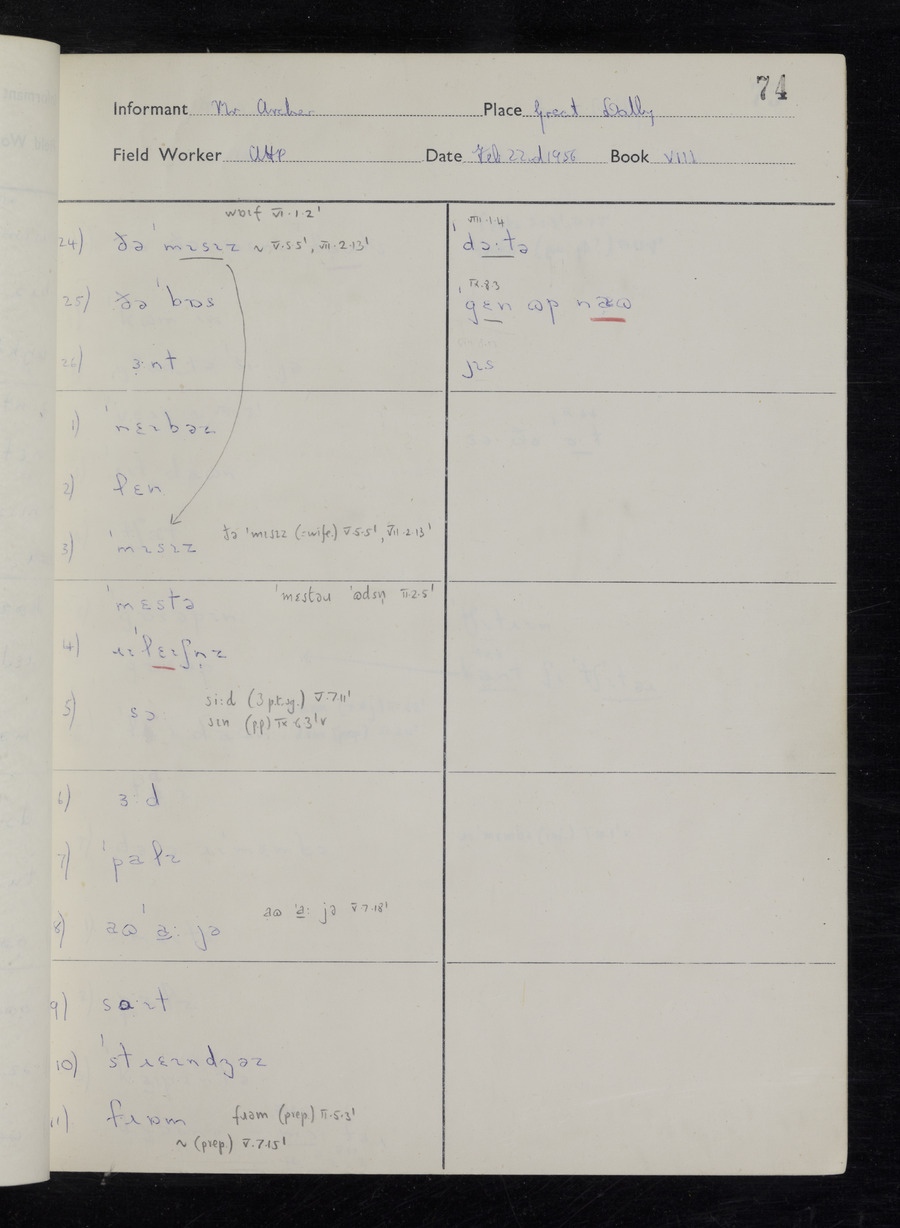 74
Informant Mr Archer Place Great Dalby
Field Worker Date Feb 22nd 1956 Book VIII
wɒɪf VI.1.2'
24) ðə ˈmɪsɪz ~ V.5.5', VII.2.13'
25) ðə ˈbɒs
26) ɜ:nt
1) ˈnɛɪbəz
2) ɫɛn
3) ˈmɪsɪz ðə ˈmɪsɪz (=wife) V.5.5', VII.2.13'
ˈmɛstə ˈmɛstəɹ ˈɒdsn̩ II.2.5'
4) ɹɪˈɫɛɪʃn̩z
5) sɔ: si:d (3 p.t.sg.) V.7.11'
sɪn (pp) IX.6.3'v
6) ɜ:d
7) ˈpaɫɪ
8) aɷ ˈa: jə aɷ ˈa: jə V.7.18'
9) sɑ:ɪt
10) ˈstɹɛɪndʒəz
11) fɹɒm fɹəm (prep) II.5.3'
~ (prep) V.7.15'
VIII.1.4
ˈdɔ:tə
IX.8.3
ˈgɛn ɷp næɷ
jɪs